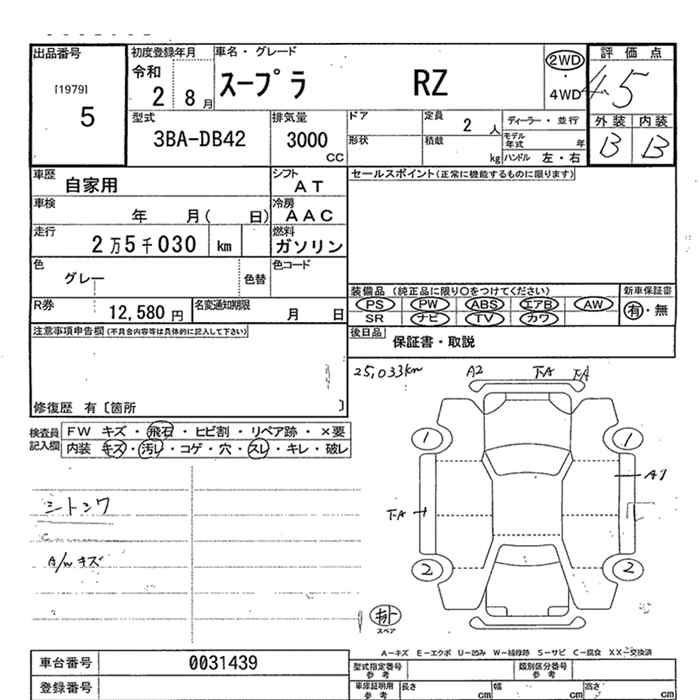 出品番号
[1979]
5
初度登録年月
令和
2 8月
車名・グレード
スープラ RZ
2WD
・
4WD
評価点
4.5
外装 内装
B B
型式
3BA-DB42
排気量
3000
CC
ドア
定員
2人
形状
積載
kg
ディーラー・並行
モデル年式 年
ハンドル 左・右
車歴
自家用
シフト
AT
車検
年 月( 日)
冷房
AAC
走行
2万5千030 km
燃料
ガソリン
色
グレー
色替
色コード
R券
12,580円
名変通知期限
月 日
セールスポイント(正常に機能するものに限ります)
装備品(純正品に限り〇をつけてください)
PS PW ABS エアB AW
SR ナビ TV カワ
新車保証書
有・無
後日品
保証書・取説
注意事項申告欄(不具合内容等は具体的に記入して下さい)
修復歴 有〔箇所 〕
検査員記入欄
FW キズ・飛石・ヒビ割・リペア跡・×要
内装 キズ・汚レ・コゲ・穴・スレ・キレ・破レ
25,033km
A2
A1
1 1
2 2
A/Wキズ
スペア
A-キズ E-エクボ U-凹み W-補修跡 S-サビ C-腐食 XX-交換済
車台番号
0031439
登録番号
型式指定番号
参考
類別区分番号
参考
車庫証明用
参考
長さ cm
幅 cm
高さ cm